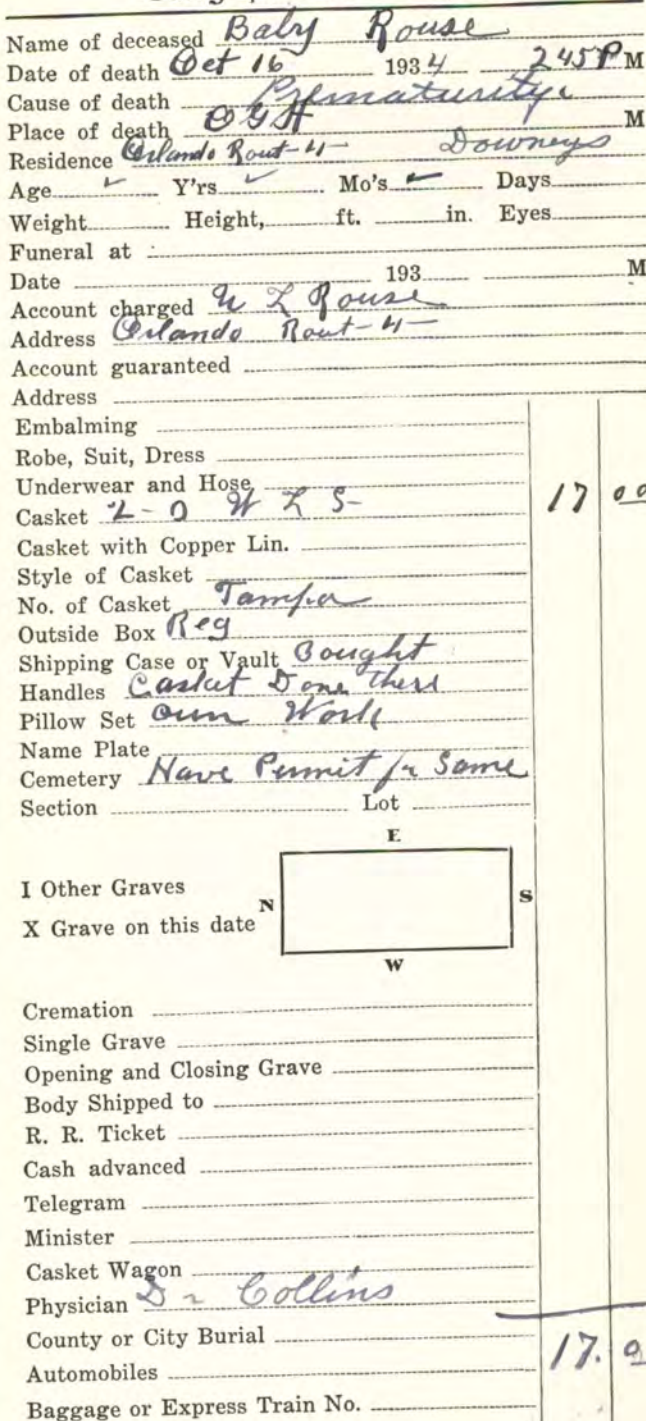 Name of deceased Baby Rouse
Date of death Oct 16 1934 245 P M
Cause of death Prematurity
Place of death OGH M
Residence Orlando Rout-4- Downeys
Age Y'rs Mo's Days
Weight Height, ft. in. Eyes
Funeral at
Date 193 M
Account charged W L Rouse
Address Orlando Rout-4-
Account guaranteed
Address
Embalming
Robe, Suit, Dress
Underwear and Hose
Casket 2-0 W L S- 17 00
Casket with Copper Lin.
Style of Casket
No. of Casket Tampa
Outside Box Reg
Shipping Case or Vault Bought
Handles Casket Done there
Pillow Set own Work
Name Plate
Cemetery Have Permit for Same
Section Lot
E
I Other Graves
N S
X Grave on this date
W
Cremation
Single Grave
Opening and Closing Grave
Body Shipped to
R. R. Ticket
Cash advanced
Telegram
Minister
Casket Wagon
Physician Dr Collins
County or City Burial
17. 0
Automobiles
Baggage or Express Train No.